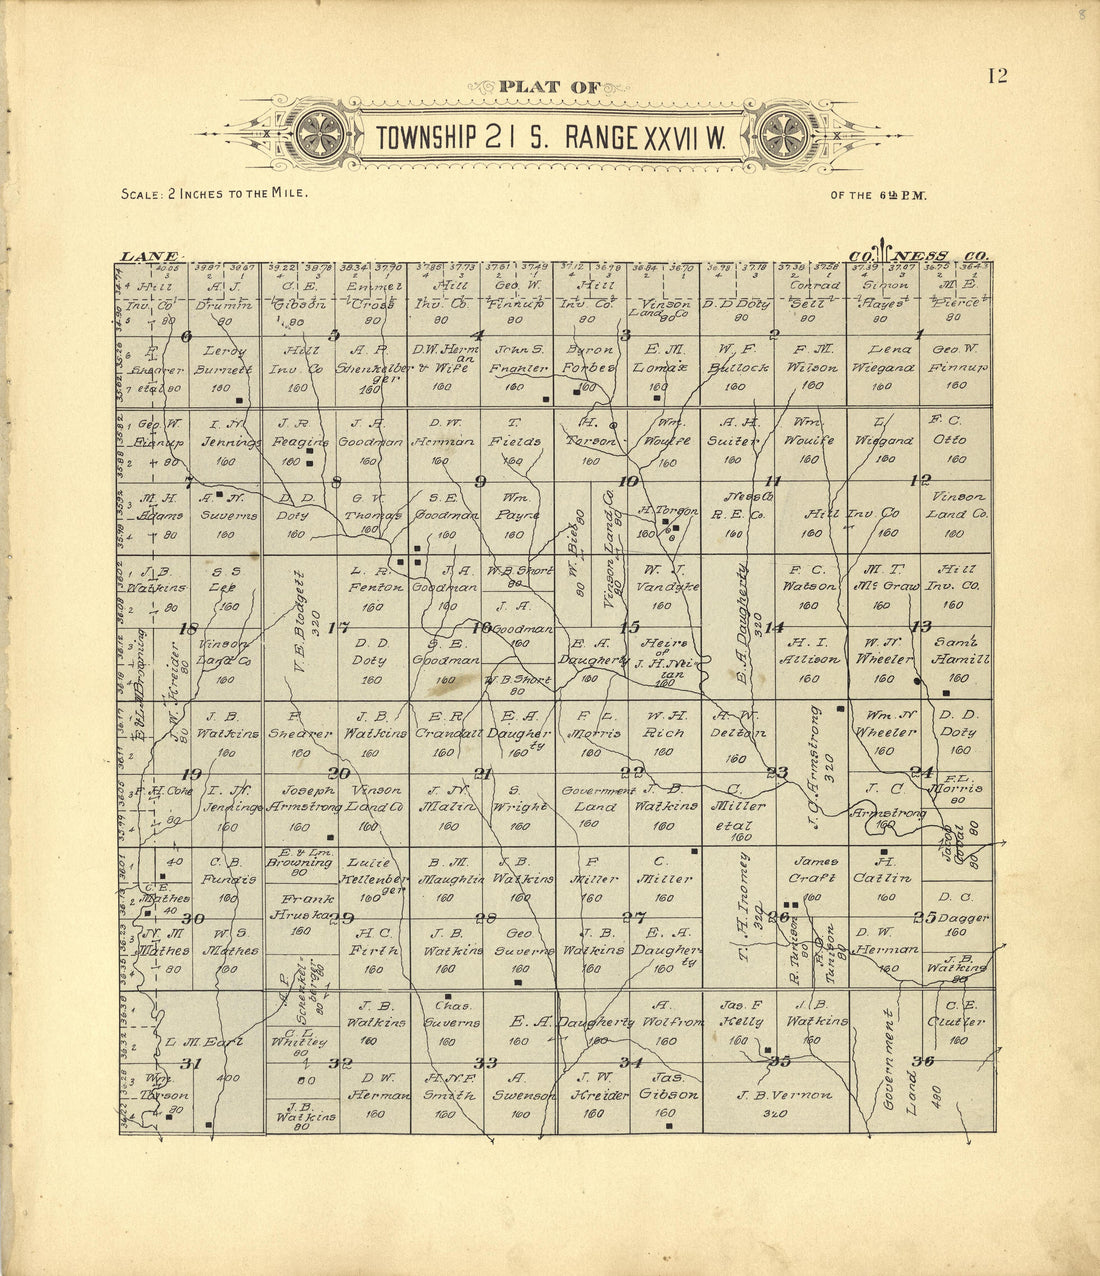 8
12
PLAT OF
TOWNSHIP 21 S. RANGE XXVII W.
SCALE: 2 INCHES TO THE MILE.
OF THE 6th P.M.
LANE
CO. NESS CO.
40.05 39.87 39.67 39.22 38.78 38.34 37.90 37.73 37.61 37.49 37.12 36.79 36.84 36.70 37.18 37.38 37.58 37.39 37.07 36.75
Hill Inv. Co 80
A. J. Drumm 80
C. E. Gibson 80
Emmel Cross 80
Hill Inv. Co 80
Geo. W. Finnup 80
Hill Inv. Co. 80
Vinson Land Co 80
D. D Doty 80
Conrad Sell 80
Simon Hayes 80
M. E. Pierce 80
6 5 4 3 2 1
F. Shearer etal 80
Leroy Burnett 160
Hill Inv. Co 160
A. P. Shenkelberger 160
D.W. Herman & Wife 160
John S. 160
Byron Forbes 160
E. M. Lomax 160
W. F. Bullock 160
F. M. Wilson 160
Lena Wiegand 160
Geo. W. Finnup 160
Geo. W. Finnup 80
I. N. Jennings 160
J. R. Feagins 160
J. A. Goodman 160
D. W. Herman 160
T. Fields 160
H. Torson 160
Wm. Woulfe 160
A. H. Suiter 160
Wm. Woulfe 160
L. Wiegand 160
F. C. Otto 160
7 8 9 10 11 12
M. H. Adams 80
A. N. Suverns 160
D. D. Doty 160
G. V. Thomas 160
S. E. Goodman 160
Wm. Payne 160
W. Bieb 80 80
Vinson Land Co. 80 80
H Torson 160
Ness Co R. E. Co. 160
Hill Inv. Co 160
Vinson Land Co. 160
J. B. Watkins 80
S. S Lee 160
V. E. Blodgett 320
L. R. Fenton 160
J. A. Goodman 160
W. B. Short 80
J. A. Goodman 160
W. J. Vandyke 160
E. A. Daugherty 320
F. C. Watson 160
M. T. McGraw 160
Hill Inv. Co. 160
18 17 16 15 14 13
E. & L. M Browning
J. W. Kreider 80 80
Vinson Land Co 160
D. D Doty 160
S. E. Goodman 160
W. B. Short 80
E. A. Daugherty 160
Heirs of J. H. Neilan 160
H. I. Allison 160
W. N. Wheeler 160
Sam'l Hamill 160
J. B. Watkins 160
F. Shearer 160
J. B. Watkins 160
E. R. Crandall 160
E. A. Daugherty 160
F. L. Morris 160
W. H. Rich 160
A. W. Delton 160
J. C. Armstrong 320
Wm. N Wheeler 160
D. D. Doty 160
19 20 21 22 23 24
F. H. Coke 80
I. N. Jennings 160
Joseph Armstrong 160
Vinson Land Co 160
J. N. Malin 160
S. Wright 160
Government Land 160
J. B. Watkins 160
C. Miller etal 160
J. C. Armstrong 160
F. L. Morris 80
Jacob Coval 80 80
40
C. E. Mathes 40
C. B. Fundis 160
E. & L.m. Browning 80
Frank Hruska 160
Luite Kellenberger 160
B. M. Maughlin 160
J. B. Watkins 160
F. Miller 160
C. Miller 160
T. H. Inomey 320
James Craft 160
H. Catlin 160
D. C. Dagger 160
30 29 28 27 26 25
N. M Mathes 80
W. S. Mathes 160
A. P. Schenkelberger 80 80
H. C. Firth 160
J. B. Watkins 160
Geo Suverns 160
J. B. Watkins 160
E. A. Daugherty 160
R. Tunison 80
A. D. Tunison 80
D. W. Herman 160
J. B. Watkins 80
L M. Earl 400
C. L. Whitley 80
80
J. B. Watkins 160
Chas. Suverns 160
E. A. Daugherty 160
A. Wolfrom 160
Jas. F Kelly 160
J. B. Watkins 160
Government Land 480
C. E. Clutter 160
31 32 33 34 35 36
Wm. Torson 80
J. B. Watkins 80
D. W. Herman 160
H. N. F. Smith 160
A. Swenson 160
J. W. Kreider 160
Jas. Gibson 160
J. B. Vernon 320